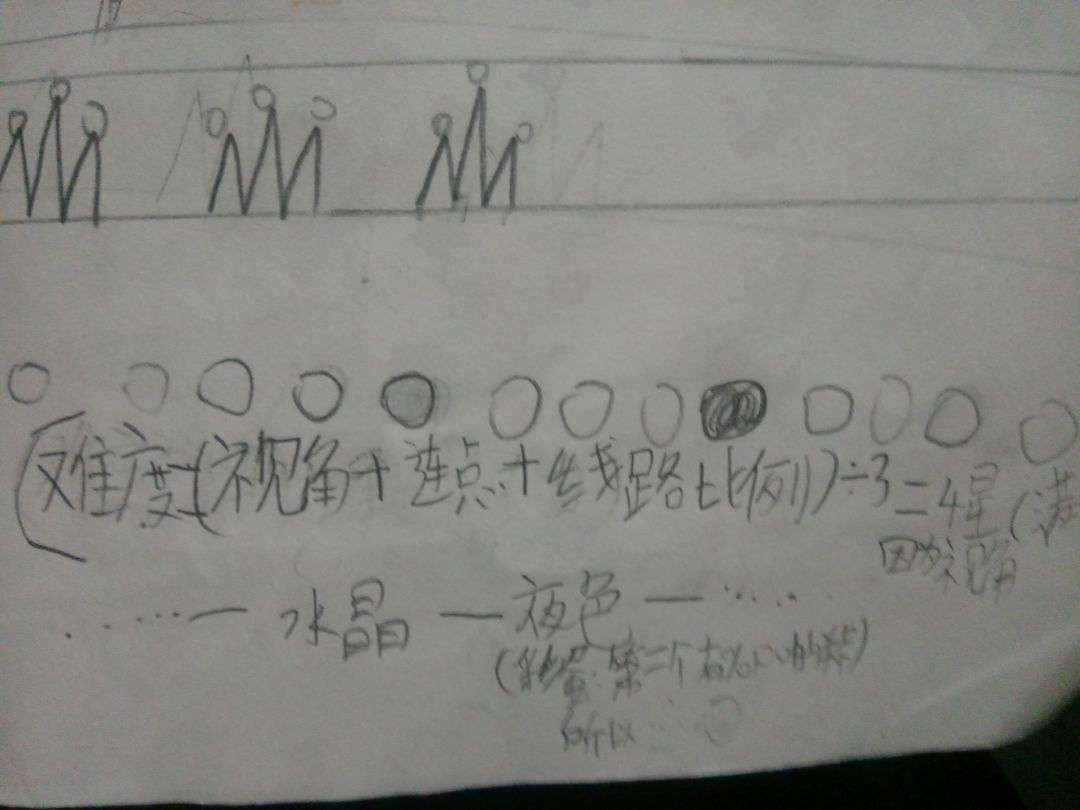 (难度=(视角+连点+线路比例)÷3=4星(满
因为视角
……— 水晶 — 夜色 — ……
(彩蛋:第二个右
所以……